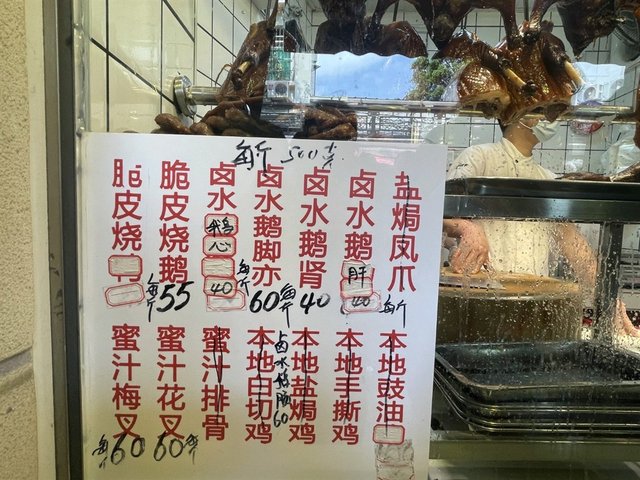 每斤500克
脆皮烧
脆皮烧鹅
每斤55
卤水鹅心
40
卤水鹅脚亦
每斤60
卤水鹅肾
每斤40
卤水鹅肝
40
盐焗凤爪
每斤
蜜汁梅叉
每斤60
蜜汁花叉
60每斤
蜜汁排骨
本地白切鸡
卤水
60
本地盐焗鸡
本地手撕鸡
本地豉油